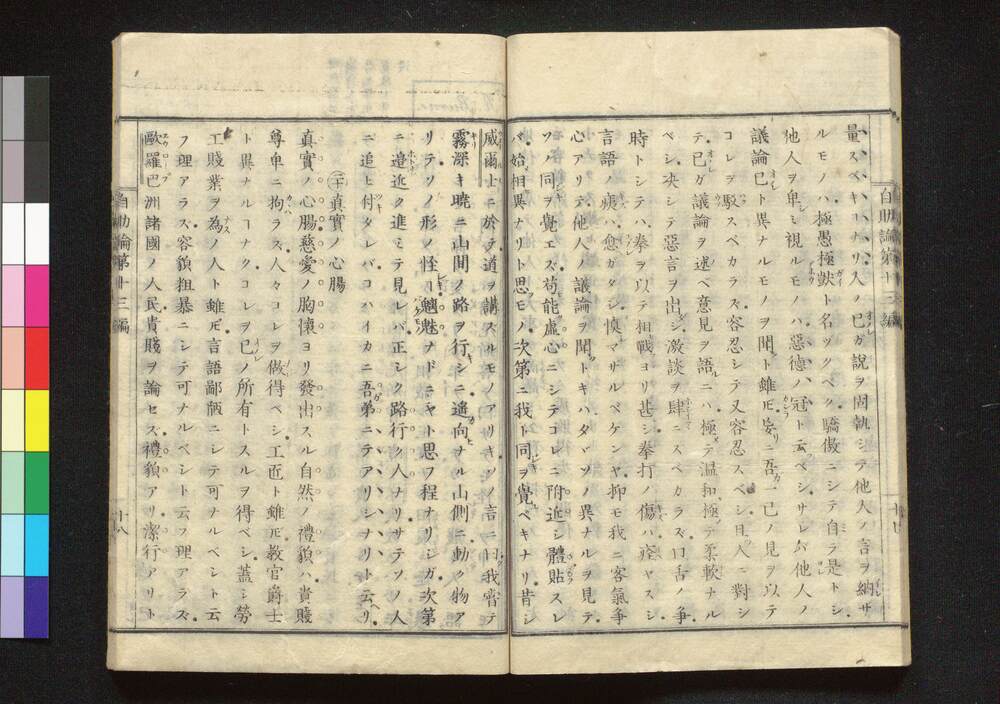 量スベキヿナリ人ノ己ガ說ヲ固執シテ他人ノ言ヲ納サ
ルモノハ極愚極獃ト名ヅクベク驕傲ニシテ自ラ是トシ
他人ヲ卑ミ視ルモノハ惡德ノ冠ト云ベシサレバ他人ノ
議論己ト異ナルモノヲ聞ト雖𪜈妄リニ吾一己ノ見ヲ以テ
コレヲ駁スベカラズ容忍シテ又容忍スベシ且人ニ對シ
テ己ガ議論ヲ述ベ意見ヲ語ルニハ極テ溫和極テ柔軟ナル
ベシ决シテ惡言ヲ出シ激談ヲ肆ニスベカラズ口舌ノ爭
時トシテハ拳ヲ以テ相戰ヨリ甚シ拳打ノ傷ハ痊ヤスシ
言語ノ瘢ハ愈ガタシ愼マザルベケンヤ抑モ我ニ客氣爭
心アリテ他人ノ議論ヲ聞トキハタヾソノ異ナルヲ見テ
ソノ同ヲ覺エズ苟能虛心ニシテコレニ附近シ體貼スレ
バ始相異ナリト思モノ次第ニ我ト同ヲ覺ベキナリ昔シ
自助論第十三編
威爾士ニ於テ道ヲ講スルモノアリキソノ言ニ曰我嘗テ
霧深キ曉ニ山間ノ路ヲ行シニ遙向ナル山側ニ動ク物ア
リテソノ形ノ怪ヿ魑魅ナドニヤト思フ程ナリシガ次第
ニ邉近ク進ミテ見レバ正シク路行ク人ナリサテソノ人
ニ追ヒ付タレバコハイカニ吾弟ニテアリシナリト云リ
㊁十真實ノ心腸
真實ノ心腸慈愛ノ胸懷ヨリ發出スル自然ノ禮貌ハ貴賤
尊卑ニ拘ラズ人々コレヲ做得ベシ工匠ト雖𪜈教官爵士
ト異ナルヿナクコレヲ己ノ所有トスルヲ得ベシ蓋シ勞
工賤業ヲ為ノ人ト雖𪜈言語鄙陋ニシテ可ナルベシト云
フ理アラズ容貌粗暴ニシテ可ナルベシト云フ理アラズ
歐羅巴洲諸國ノ人民貴賤ヲ論セズ禮貌アリ潔行アリト
自助論第十三編
十八